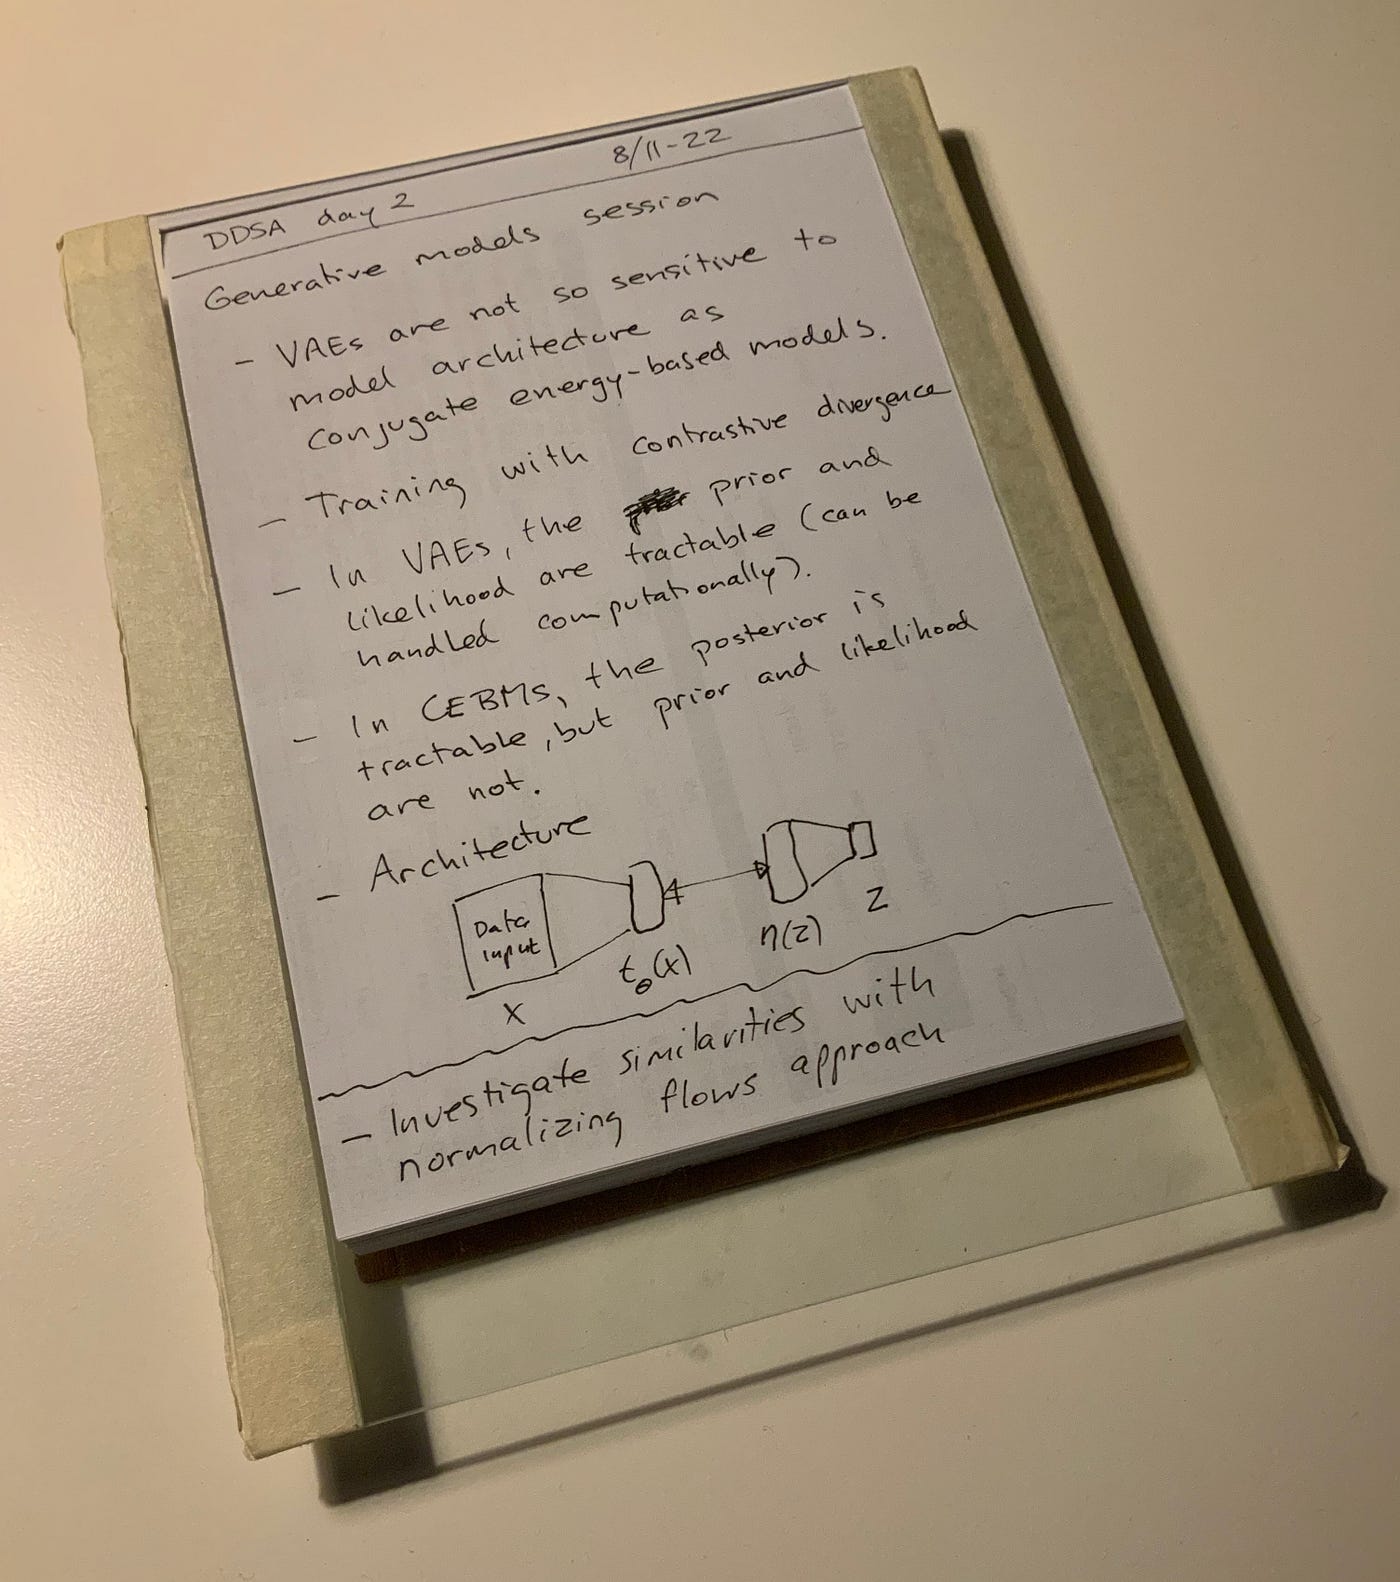 DDSA day 2 8/11-22
Generative models session
- VAEs are not so sensitive to
model architecture as
conjugate energy-based models.
- Training with contrastive divergence
- In VAEs, the prior and
likelihood are tractable (can be
handled computationally).
- In CEBMs, the posterior is
tractable, but prior and likelihood
are not.
- Architecture
Data
input
x
tθ(x)
η(z)
z
- Investigate similarities with
normalizing flows approach